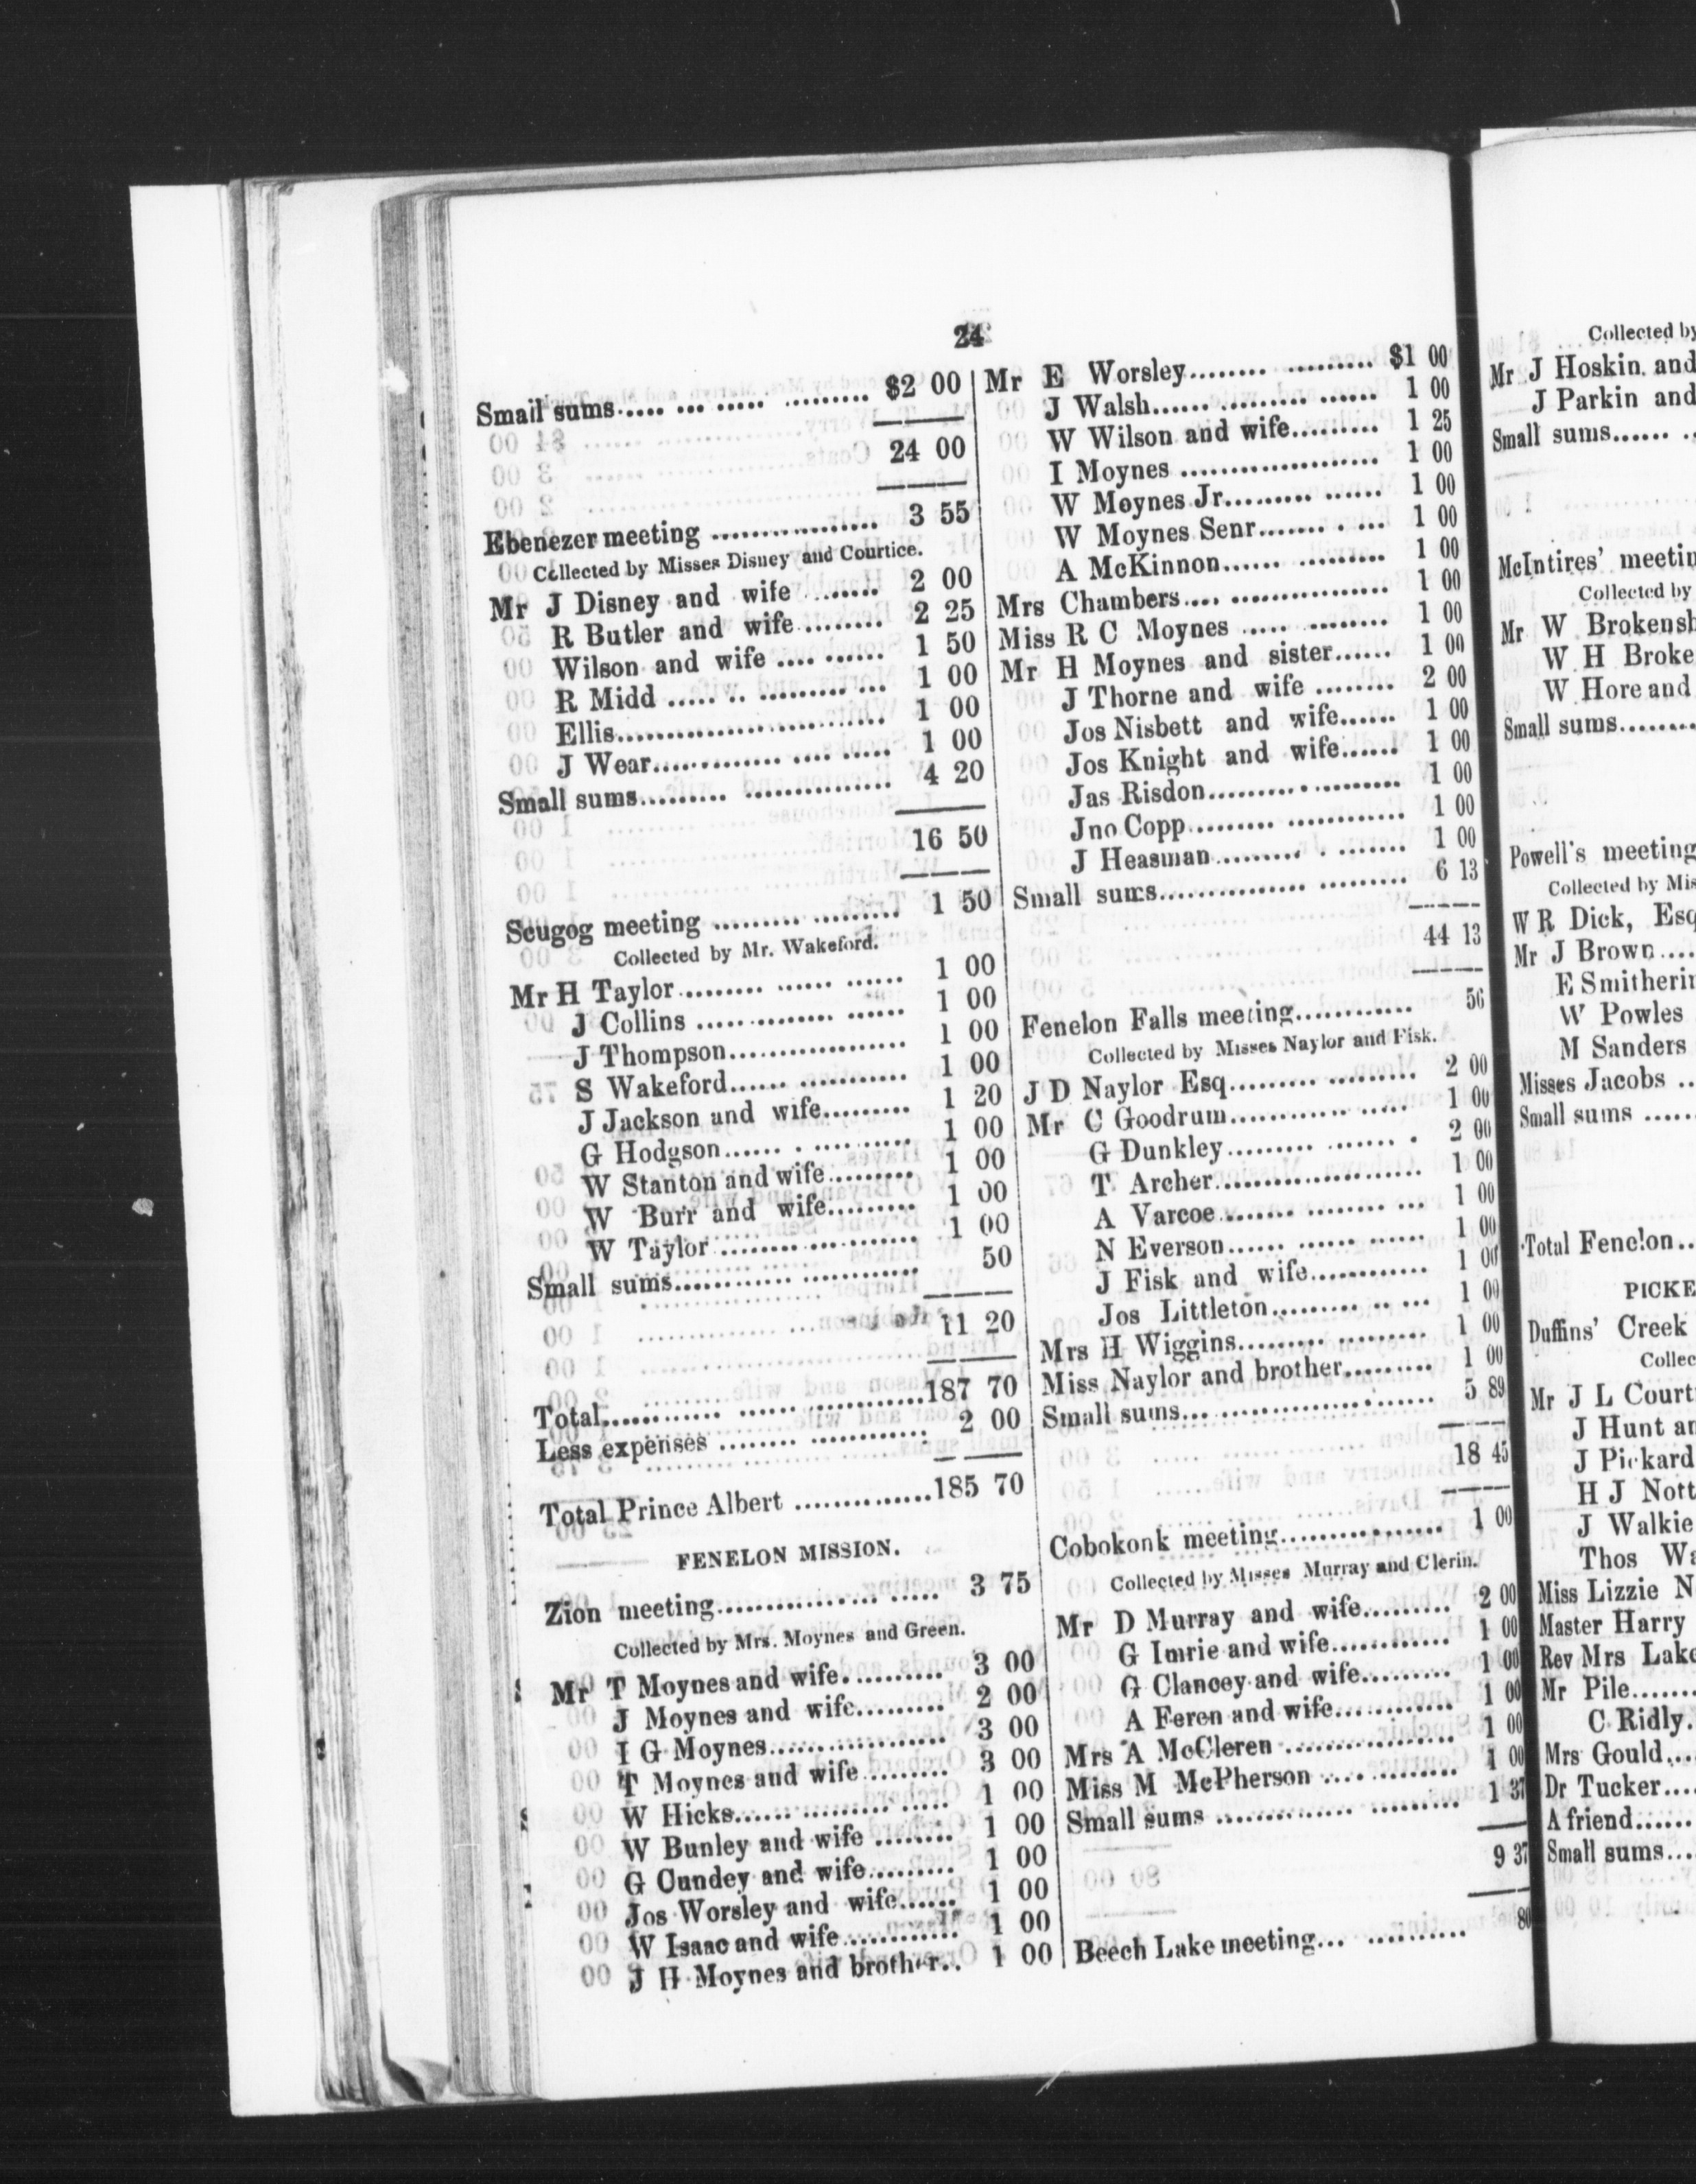 24
Small sums..... ... ..... ......... $2 00
24 00
Ebenezer meeting ................. 3 55
Collected by Misses Disney and Courtice.
Mr J Disney and wife ........ 2 00
R Butler and wife......... 2 25
Wilson and wife .... ...... 1 50
R Midd ..... .. ......... ... 1 00
Ellis........................... 1 00
J Wear............. .... ..... 1 00
Small sums......... ............... 4 20
16 50
Scugog meeting .......... ......... 1 50
Collected by Mr. Wakeford.
Mr H Taylor......... ...... ...... 1 00
J Collins .............. ...... 1 00
J Thompson.................. 1 00
S Wakeford...... ........... 1 00
J Jackson and wife......... 1 20
G Hodgson...... . .......... 1 00
W Stanton and wife......... 1 00
W Burr and wife......... 1 00
W Taylor .................... 1 00
Small sums............ ............ 50
11 20
Total............. ...... ............187 70
Less expenses ........ ............ 2 00
Total Prince Albert ...............185 70
FENELON MISSION.
Zion meeting................. ..... 3 75
Collected by Mrs. Moynes and Green.
Mr T Moynes and wife.......... 3 00
J Moynes and wife......... 2 00
I G Moynes.................. 3 00
T Moynes and wife ........ 3 00
W Hicks...... ......... ..... 1 00
W Bunley and wife ........ 1 00
G Cundey and wife......... 1 00
Jos Worsley and wife...... 1 00
W Isaac and wife............ 1 00
J H Moynes and brother.. 1 00
Mr E Worsley........ ......... $1 00
J Walsh...... ......... ...... 1 00
W Wilson and wife......... 1 25
I Moynes .................... 1 00
W Moynes Jr......... ...... 1 00
W Moynes Senr........ . ... 1 00
A McKinnon...... ......... 1 00
Mrs Chambers.... ................ 1 00
Miss R C Moynes ..... ......... 1 00
Mr H Moynes and sister...... 1 00
J Thorne and wife ........ 2 00
Jos Nisbett and wife...... 1 00
Jos Knight and wife...... 1 00
Jas Risdon.................... 1 00
Jno Copp......... ............ 1 00
J Heasman......... . ........ 1 00
Small sums............... ......... 6 13
44 13
Fenelon Falls meeting............ 56
Collected by Misses Naylor and Fisk.
J D Naylor Esq......... ......... 2 00
Mr C Goodrum............ ..... 1 00
G Dunkley......... ....... . 2 00
T Archer..................... 1 00
A Varcoe........ ......... ... 1 00
N Everson...... ...... ...... 1 00
J Fisk and wife............ 1 00
Jos Littleton......... .. ... 1 00
Mrs H Wiggins.......... ......... 1 00
Miss Naylor and brother......... 1 00
Small sums... ..................... 5 89
18 45
Cobokonk meeting................. 1 00
Collected by Misses Murray and Clerin.
Mr D Murray and wife......... 2 00
G Imrie and wife............ 1 00
G Clancey and wife......... 1 00
A Feren and wife............ 1 00
Mrs A McCleren ................. 1 00
Miss M McPherson .... ......... 1 00
Small sums .............. ......... 1 37
9 37
Beech Lake meeting... ........... 80
Collected by
Mr J Hoskin and
J Parkin and
Small sums...... ..
McIntires' meetin
Collected by
Mr W Brokensh
W H Broke
W Hore and
Small sums........
Powell's meeting
Collected by Mis
W R Dick, Esq
Mr J Brown....
E Smitherin
W Powles
M Sanders
Misses Jacobs ..
Small sums .....
Total Fenelon..
PICKE
Duffins' Creek
Collec
Mr J L Court
J Hunt an
J Pickard
H J Nott
J Walkie
Thos Wa
Miss Lizzie N
Master Harry
Rev Mrs Lake
Mr Pile.......
C Ridly.
Mrs Gould....
Dr Tucker....
A friend......
Small sums...